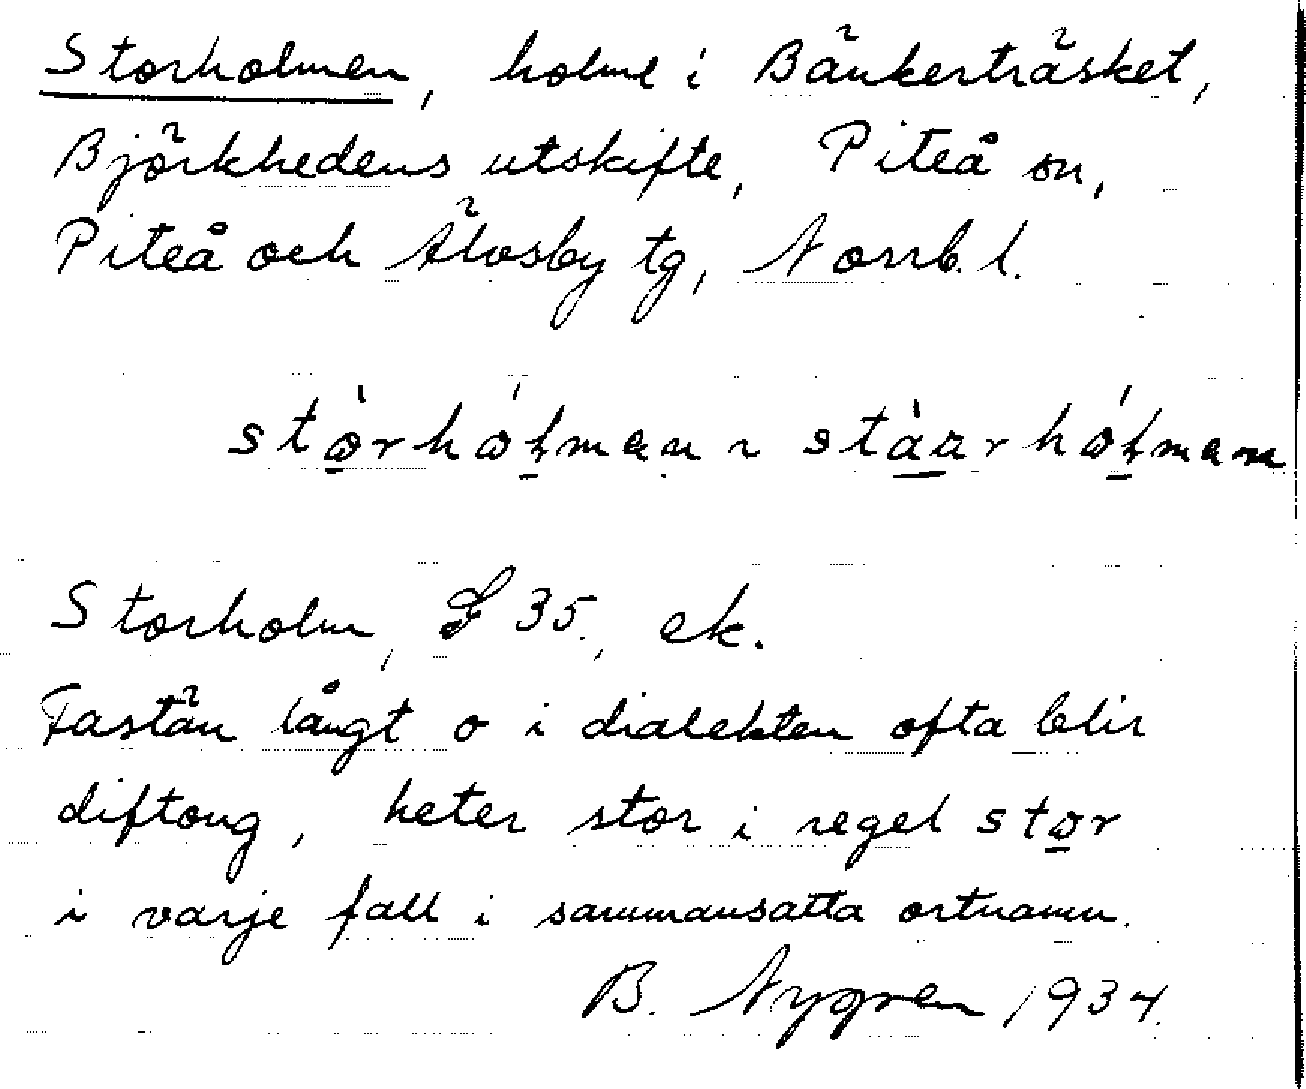 Storholmen, holme i Bänkerträsket,
Björkhedens utskifte, Piteå sn,
Piteå och Älvsby tg, Norrb. l.
Storholm, G 35, ek.
Fastän långt o i dialekten ofta blir
diftong, heter stor i regel stor
i varje fall i sammansatta ortnamn.
B. Nygren 1934.